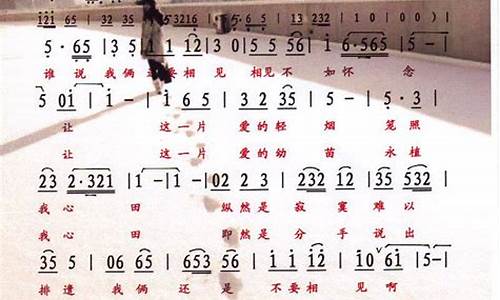 5· 65 | 3 5 | i i i2 | 3·0 | 5 5 56 | i 6·565 | 5 – |
谁 说 我 俩 要相 见 相见 不 如怀 念
5 0i | i – | i 6 5 | 3 2 35 | 5 – | 5· 3 |
让 这一片 爱的轻 烟 笼照
让 这一片 爱的幼 苗 永植
23 2·321 | 1 – | 1 – | 02 2 3 | 232 12 | 35 532 |
我心 田 纵然是 寂 寞 难以
我心 田 即然是 分 手 说出
35 35 | 06 65 | 653 56 | i i i2 | i0 6i | 5 – |
排 遣 我 俩 还 是 不 要相 见 啊